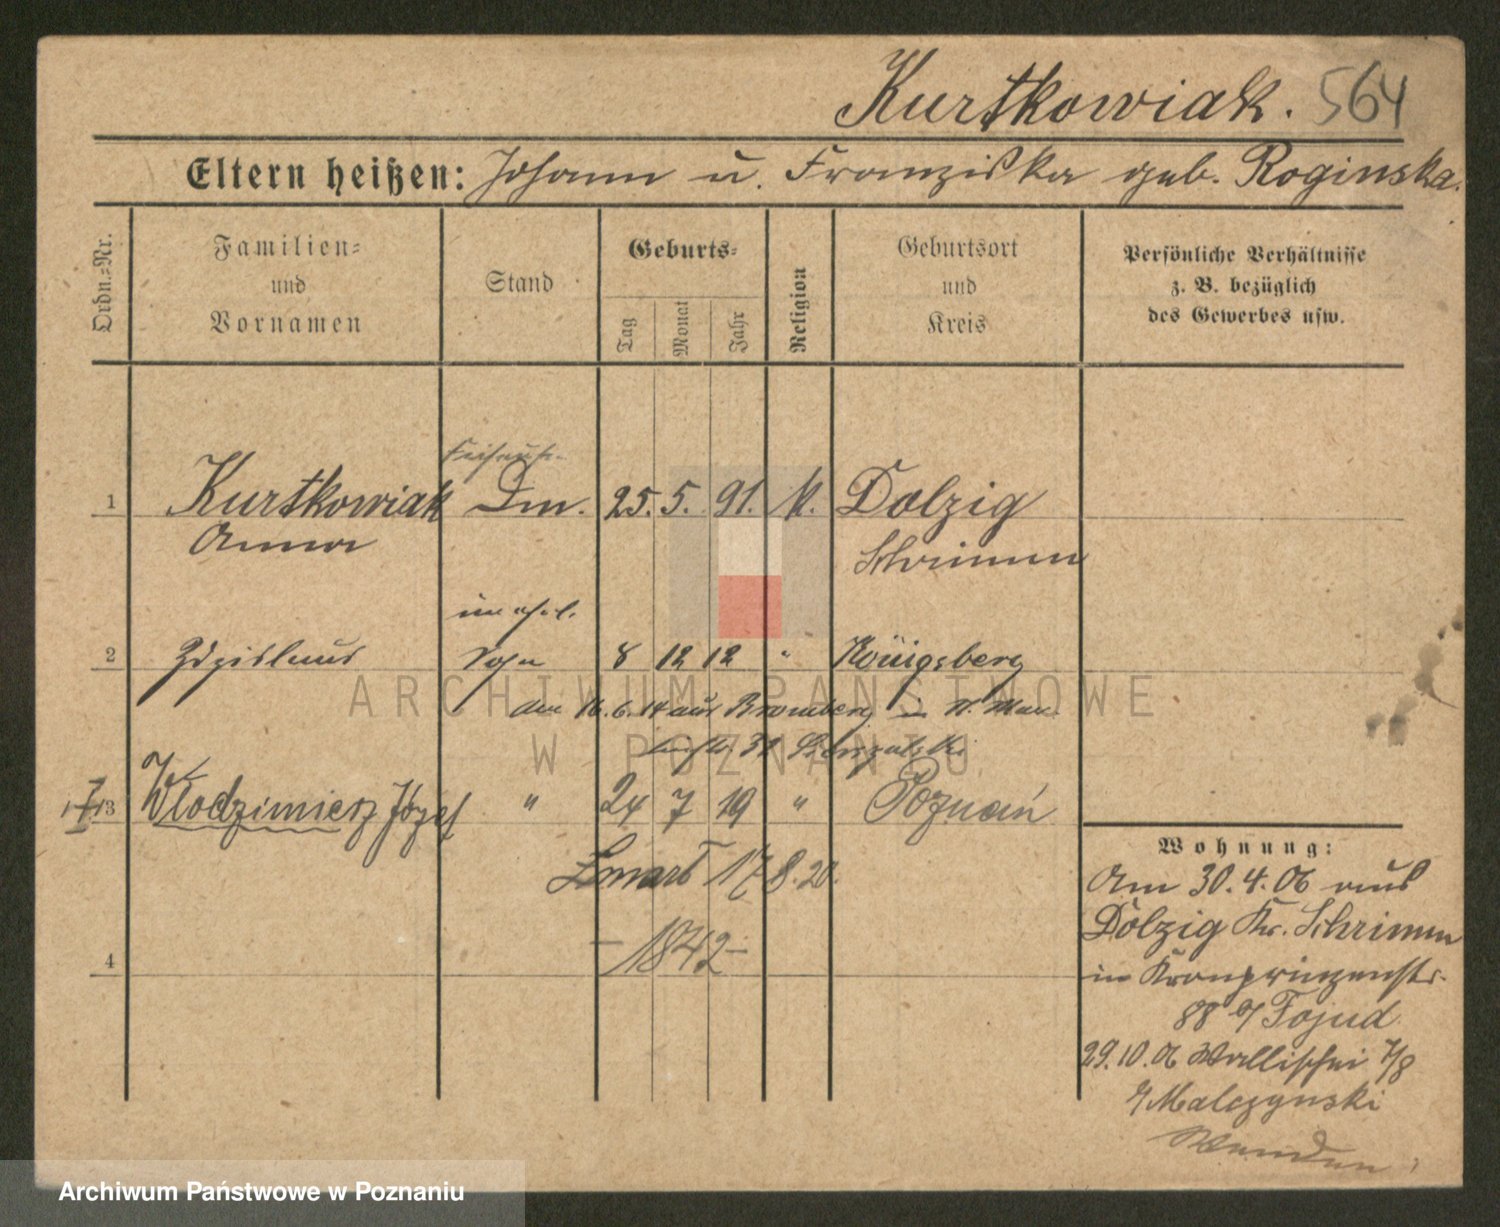 Kurtkowiak. 564
Eltern heißen: Johann u. Franziska geb. Roginska.
Ordn.=Nr.
Familien=
und
Vornamen
Stand
Geburts=
Tag
Monat
Jahr
Religion
Geburtsort
und
Kreis
Persönliche Verhältnisse
z. B. bezüglich
des Gewerbes usw.
1 Kurtkowiak Dm. 25. 5. 91. k. Dolzig
Anna Schrimm
unehel.
2 Zdzislaus Sohn 8 12 12 " Königsberg
den 16. 6. 14 aus Bromberg in
3 Włodzimierz Józef " 24 7 19 " Poznań
Zmarł 17 8. 20.
- 1842 -
4
Wohnung:
Am 30. 4. 06 aus
Dolzig Kr. Schrimm
in Kronprinzenstr.
88 b/ Tojud
29. 10. 06 Wallischei 7/8
b/ Malczynski
Wenden
ARCHIWUM PAŃSTWOWE
W POZNANIU
Archiwum Państwowe w Poznaniu